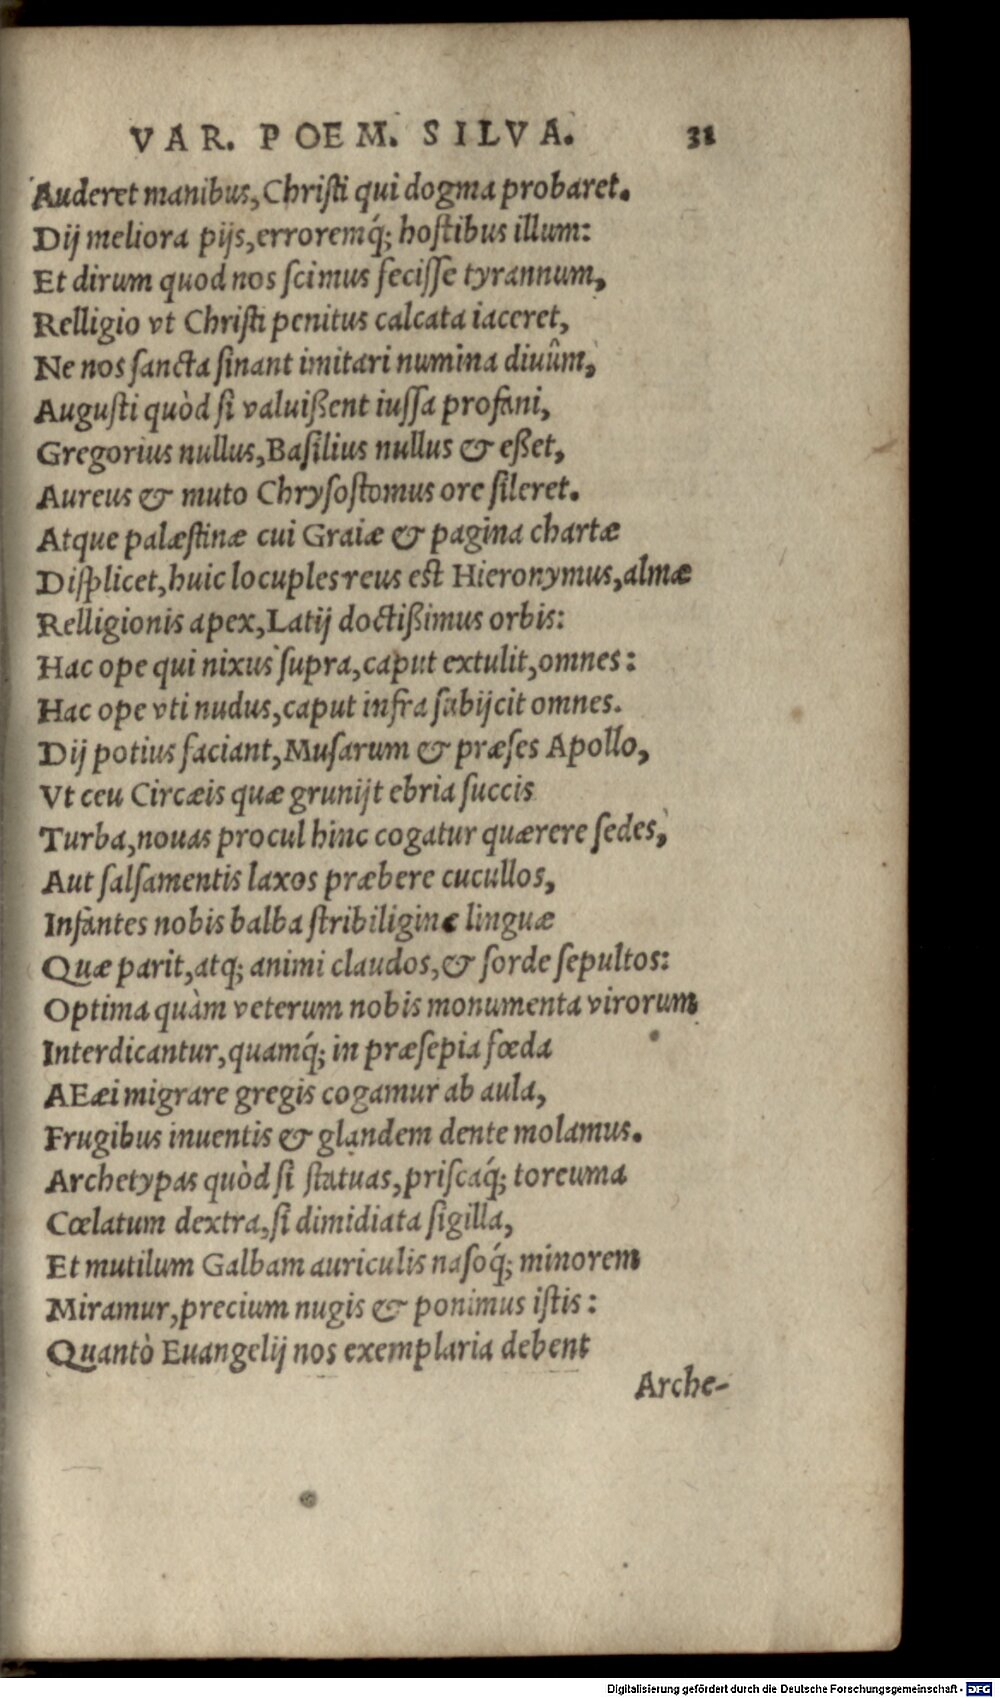 VAR. POEM. SILVA. 31
Auderet manibus, Christi qui dogma probaret.
Dij meliora pijs, erroremq́; hostibus illum:
Et dirum quod nos scimus fecisse tyrannum,
Relligio vt Christi penitus calcata iaceret,
Ne nos sancta sinant imitari numina diuûm,
Augusti quòd si valuißent iussa profani,
Gregorius nullus, Basilius nullus & eßet,
Aureus & muto Chrysostomus ore sileret.
Atque palæstinæ cui Graiæ & pagina chartæ
Displicet, huic locuples reus est Hieronymus, almæ
Relligionis apex, Latij doctißimus orbis:
Hac ope qui nixus supra, caput extulit, omnes:
Hac ope vti nudus, caput infra subijcit omnes.
Dij potius faciant, Musarum & præses Apollo,
Vt ceu Circæis quæ grunijt ebria succis
Turba, nouas procul hinc cogatur quærere sedes,
Aut salsamentis laxos præbere cucullos,
Infantes nobis balba stribiligine linguæ
Quæ parit, atq; animi claudos, & sorde sepultos:
Optima quàm veterum nobis monumenta virorum
Interdicantur, quamq́; in præsepia fœda
AEæi migrare gregis cogamur ab aula,
Frugibus inuentis & glandem dente molamus.
Archetypas quòd si statuas, priscaq́; toreuma
Cœlatum dextra, si dimidiata sigilla,
Et mutilum Galbam auriculis nasoq́; minorem
Miramur, precium nugis & ponimus istis:
Quantò Euangelij nos exemplaria debent
Arche-
Digitalisierung gefördert durch die Deutsche Forschungsgemeinschaft - DFG